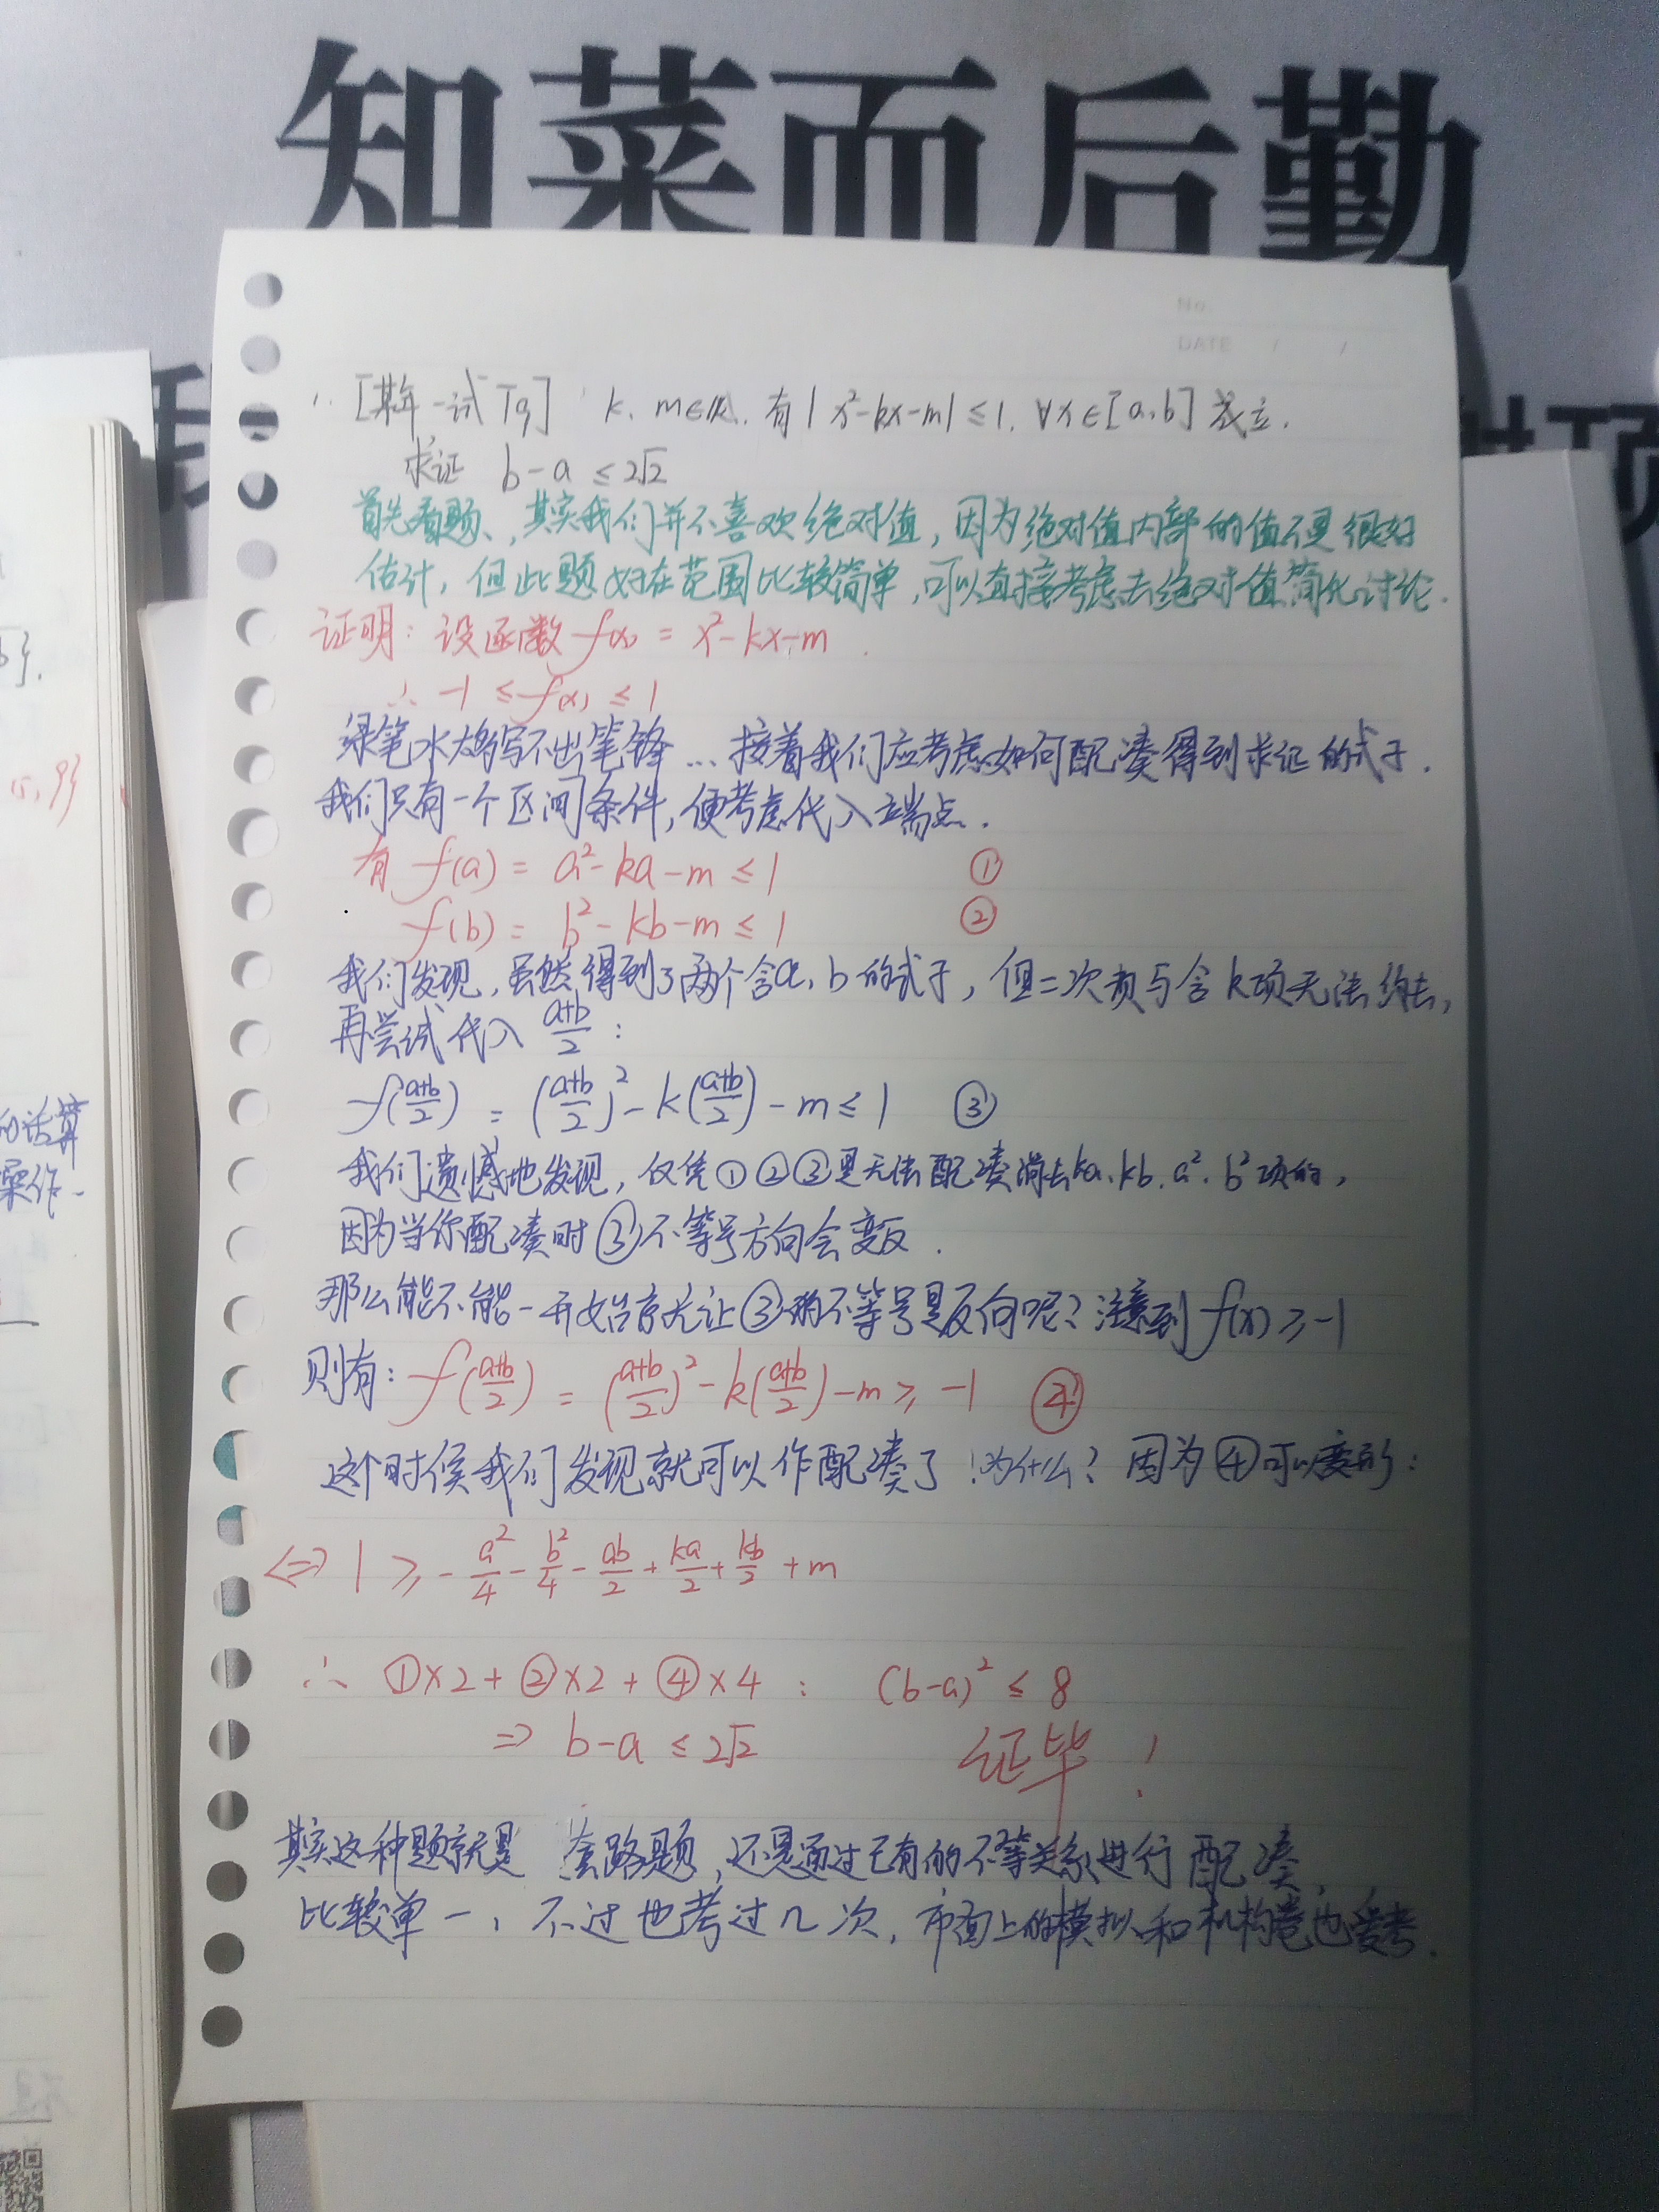 知菜而后勤
No.
DATE / /
[某年一试T9] k、m∈R，有|x²-kx-m|≤1，∀x∈[a,b]成立．
求证 b-a ≤2√2
首先看题，其实我们并不喜欢绝对值，因为绝对值内部的值不是很好
估计，但此题好在范围比较简单，可以直接考虑去绝对值简化讨论．
证明：设函数 f(x) = x²-kx-m．
∴ -1 ≤f(x) ≤1
绿笔水太多写不出笔锋…接着我们应考虑如何配凑得到求证的式子．
我们只有一个区间条件，便考虑代入端点．
有 f(a) = a²-ka-m ≤1 ①
f(b) = b²-kb-m ≤1 ②
我们发现，虽然得到了两个含a、b的式子，但二次项与含k项无法约去，
再尝试代入 (a+b)/2：
f((a+b)/2) = ((a+b)/2)²-k((a+b)/2)-m ≤1 ③
我们遗憾地发现，仅凭①②③是无法配凑消去ka、kb、a²、b²项的，
因为当你配凑时③不等号方向会变反．
那么能不能一开始就先让③的不等号是反向呢？注意到f(x)≥-1
则有：f((a+b)/2) = ((a+b)/2)²-k((a+b)/2)-m≥-1 ④
这个时候我们发现就可以作配凑了！为什么？因为④可以变形：
⇔ 1 ≥ -a²/4-b²/4-ab/2+ka/2+kb/2+m
∴ ①×2+②×2+④×4： (b-a)² ≤ 8
⇒ b-a ≤2√2 证毕！
其实这种题就是 套路题，还是通过已有的不等关系进行配凑，
比较单一，不过也考过几次，市面上的模拟和机构卷也爱考．
的话算
操作．